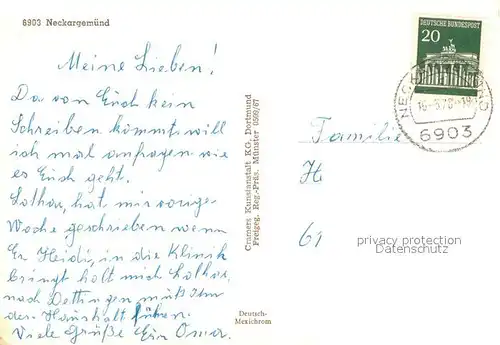 6903 Neckargemünd
Meine Lieben!
Da von Euch kein
Schreiben kommt, will
ich mal anfragen wie
es Euch geht.
Lothar, hat mir vorige
Woche geschrieben wenn
Er Heidi, in die Klinik
bringt holt mich Lothar,
nach Dettingen muß Ihm
den Haushalt führen.
Viele Grüße Eure Oma.
Cramers Kunstanstalt KG, Dortmund
Freigeg. Reg.-Präs. Münster 0599/67
Deutsch-
Mexichrom
DEUTSCHE BUNDESPOST
20
6903
Familie
H
61
privacy protection
Datenschutz